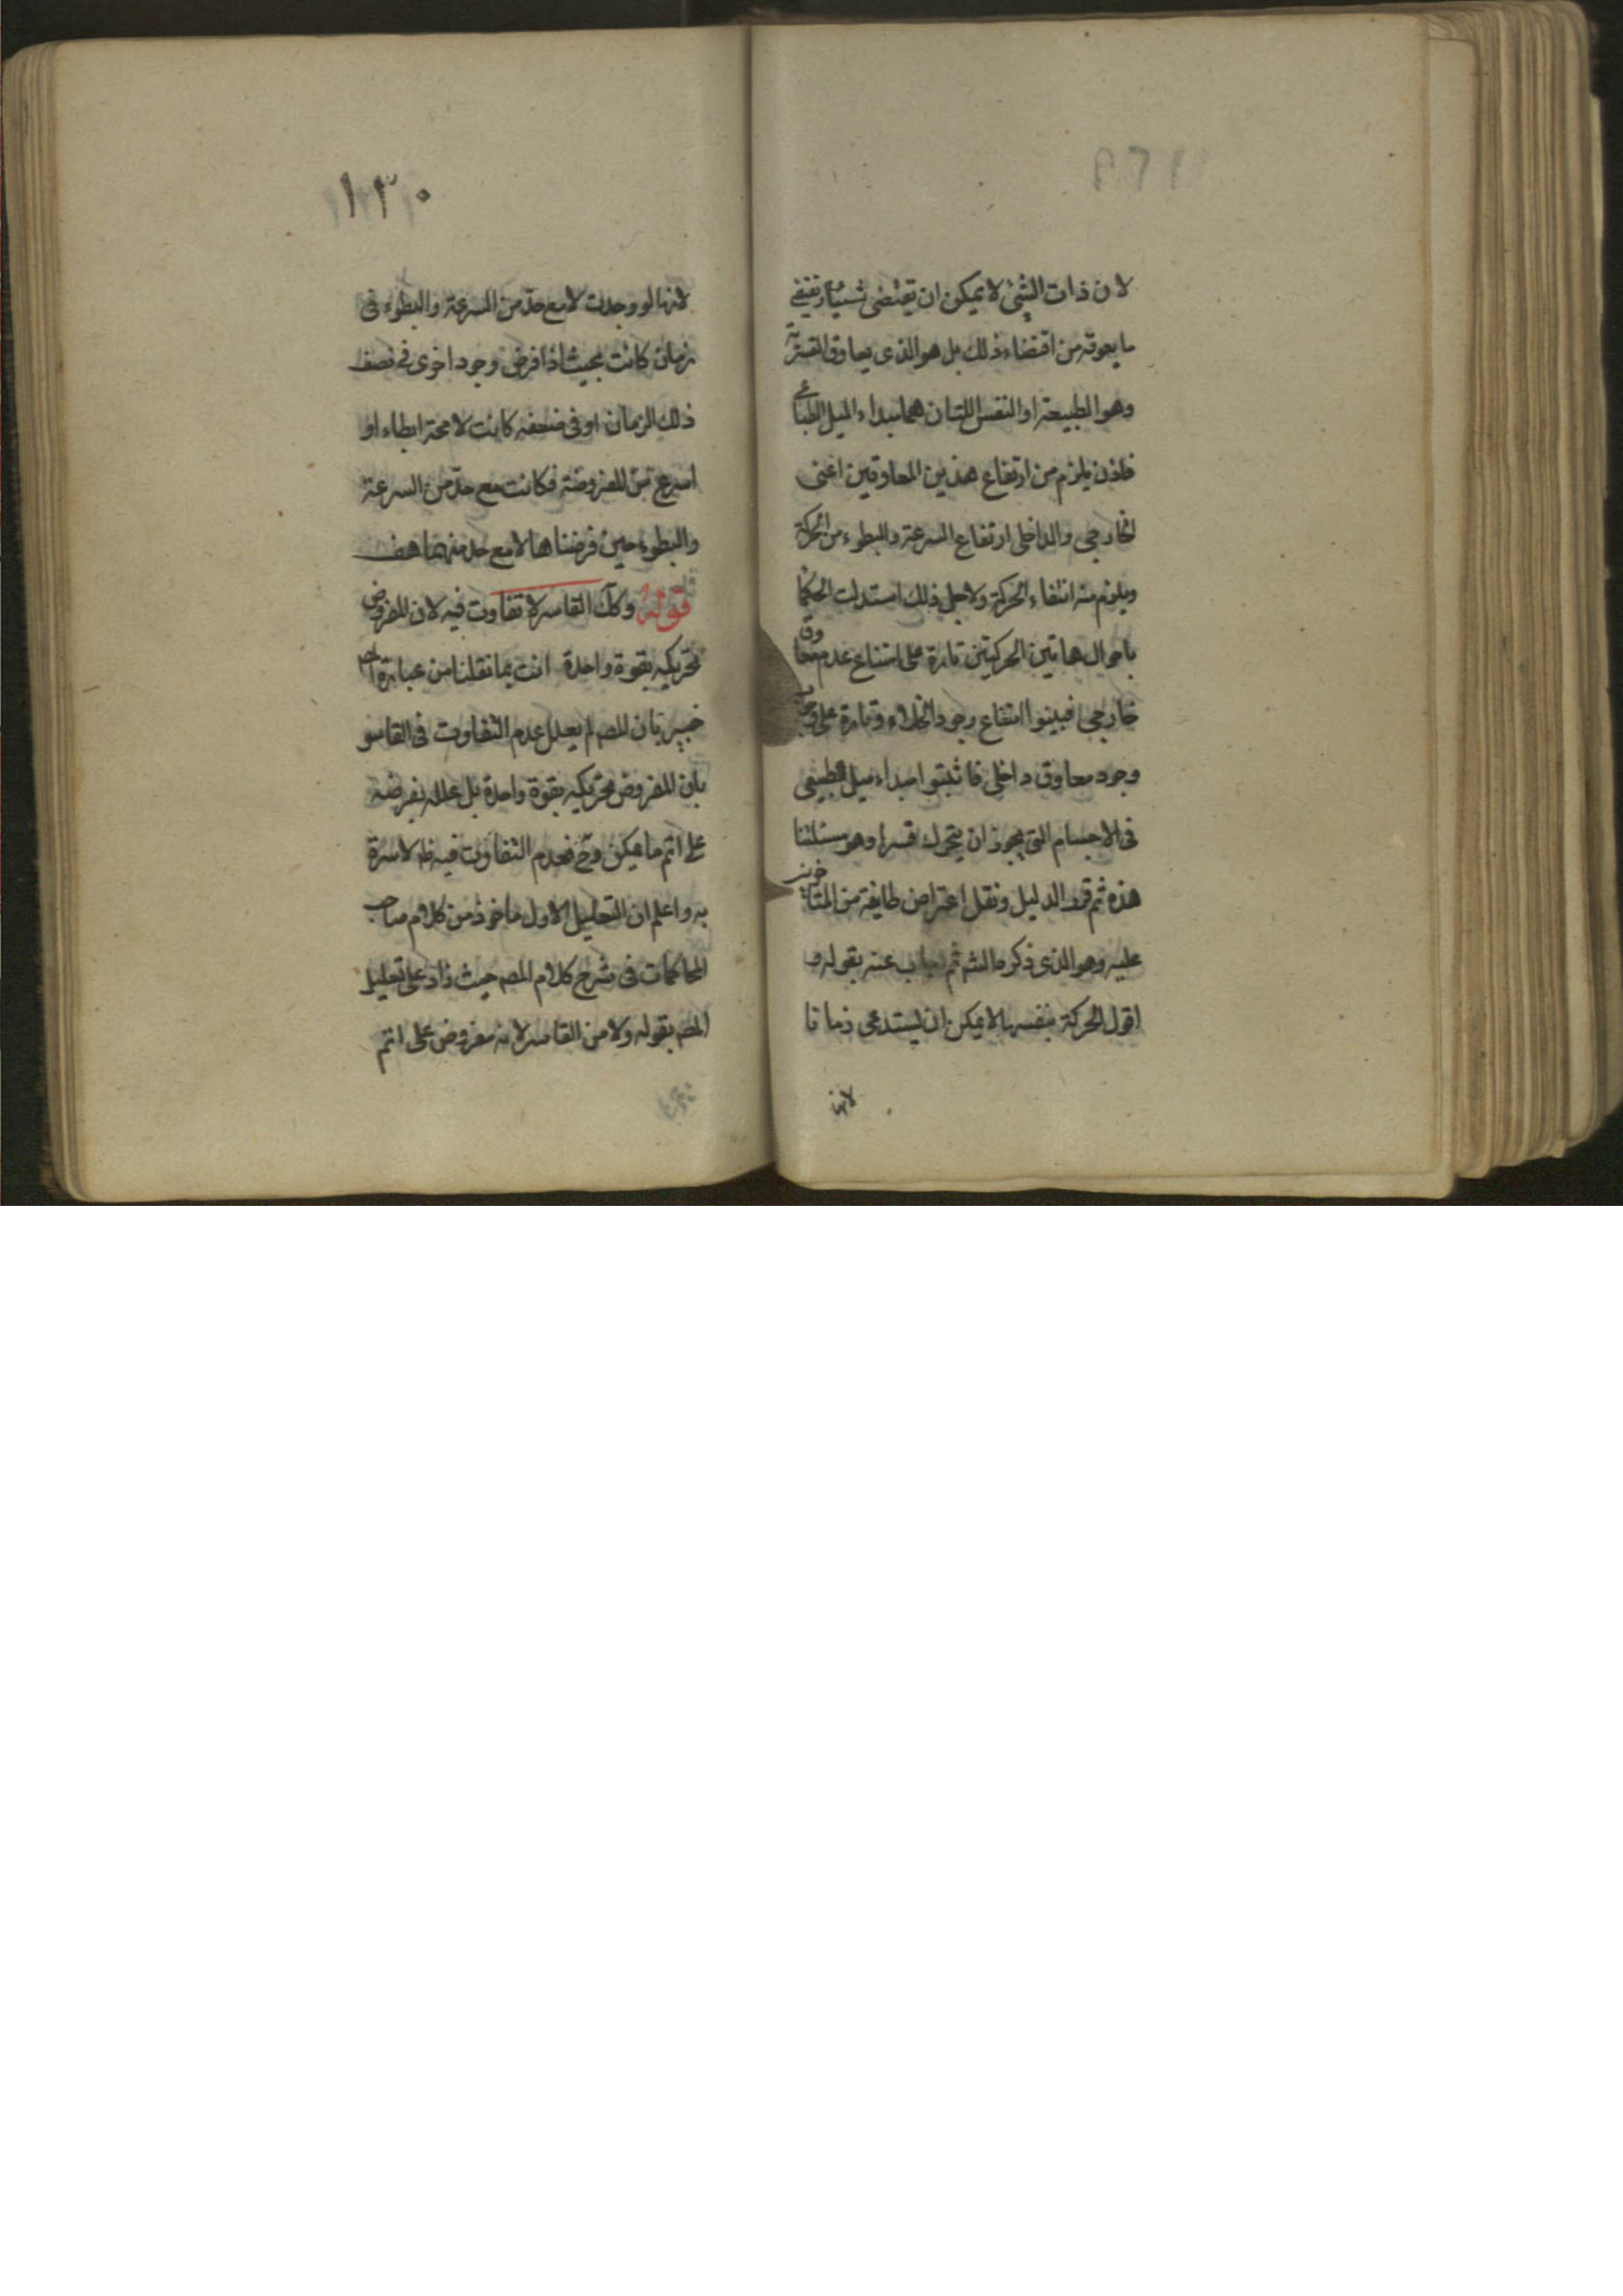 لان ذات الشئ لا يمكن ان يقتضى شيئا و يقتضى
ما يعوقه من اقتضاء ذلك بل هو الذى يعاوق القسرية
وهو الطبيعة او النفس اللتان هما مبداء الميل الطباعى
فاذن يلزم من ارتفاع هذين المعاوقين اعنى
الخارجى والداخلى ارتفاع السرعة والبطوء من الحركة
ويلزم منه انتفاء الحركة ولاجل ذلك استدلت الحكما
باحوال هاتين الحركتين تارة على امتناع عدم معاوق
خارجى فبينوا امتناع وجود الخلاء وتارة على وجوب
وجود معاوق داخلى فاثبتوا مبداء ميل طبيعى
فى الاجسام التى يجوز ان يتحرك قسرا وهو مسئلتنا
هذه ثم قرر الدليل ونقل اعتراض طايفة من المتاخرين
عليه وهو الذى ذكره الشه ثم اجاب عنه بقوله و
اقول الحركة بنفسها لا يمكن ان يستدعى زمانا
لانها
١٣٠
لانها لو وجدت لا مع حدّ من السرعة والبطوء فى
زمان كانت بحيث اذا فرض وجود اخرى فى نصف
ذلك الزمان او فى ضعفه كانت لا محة ابطاء او
اسرع من المفروضة فكانت مع حدّ من السرعة
والبطوء حين فرضناها لا مع حد منهما هف
قوله وكك القاسر لا تفاوت فيه لان المفروض
تحريكه بقوة واحدة انت بما نقلنا من عبارة
خبير بان المصه لم يعلل عدم التفاوت فى القاسر
بان المفروض تحريكه بقوة واحدة بل علله بفرضه
على اتم ما يمكن وح فعدم التفاوت فيه ظه لا سترة
به واعلم ان التعليل الاول ماخوذ من كلام صاحب
المحاكمات فى شرح كلام المصه حيث زاد على تعليل
المصه بقوله ولا من القاسر لانه مفروض على اتم